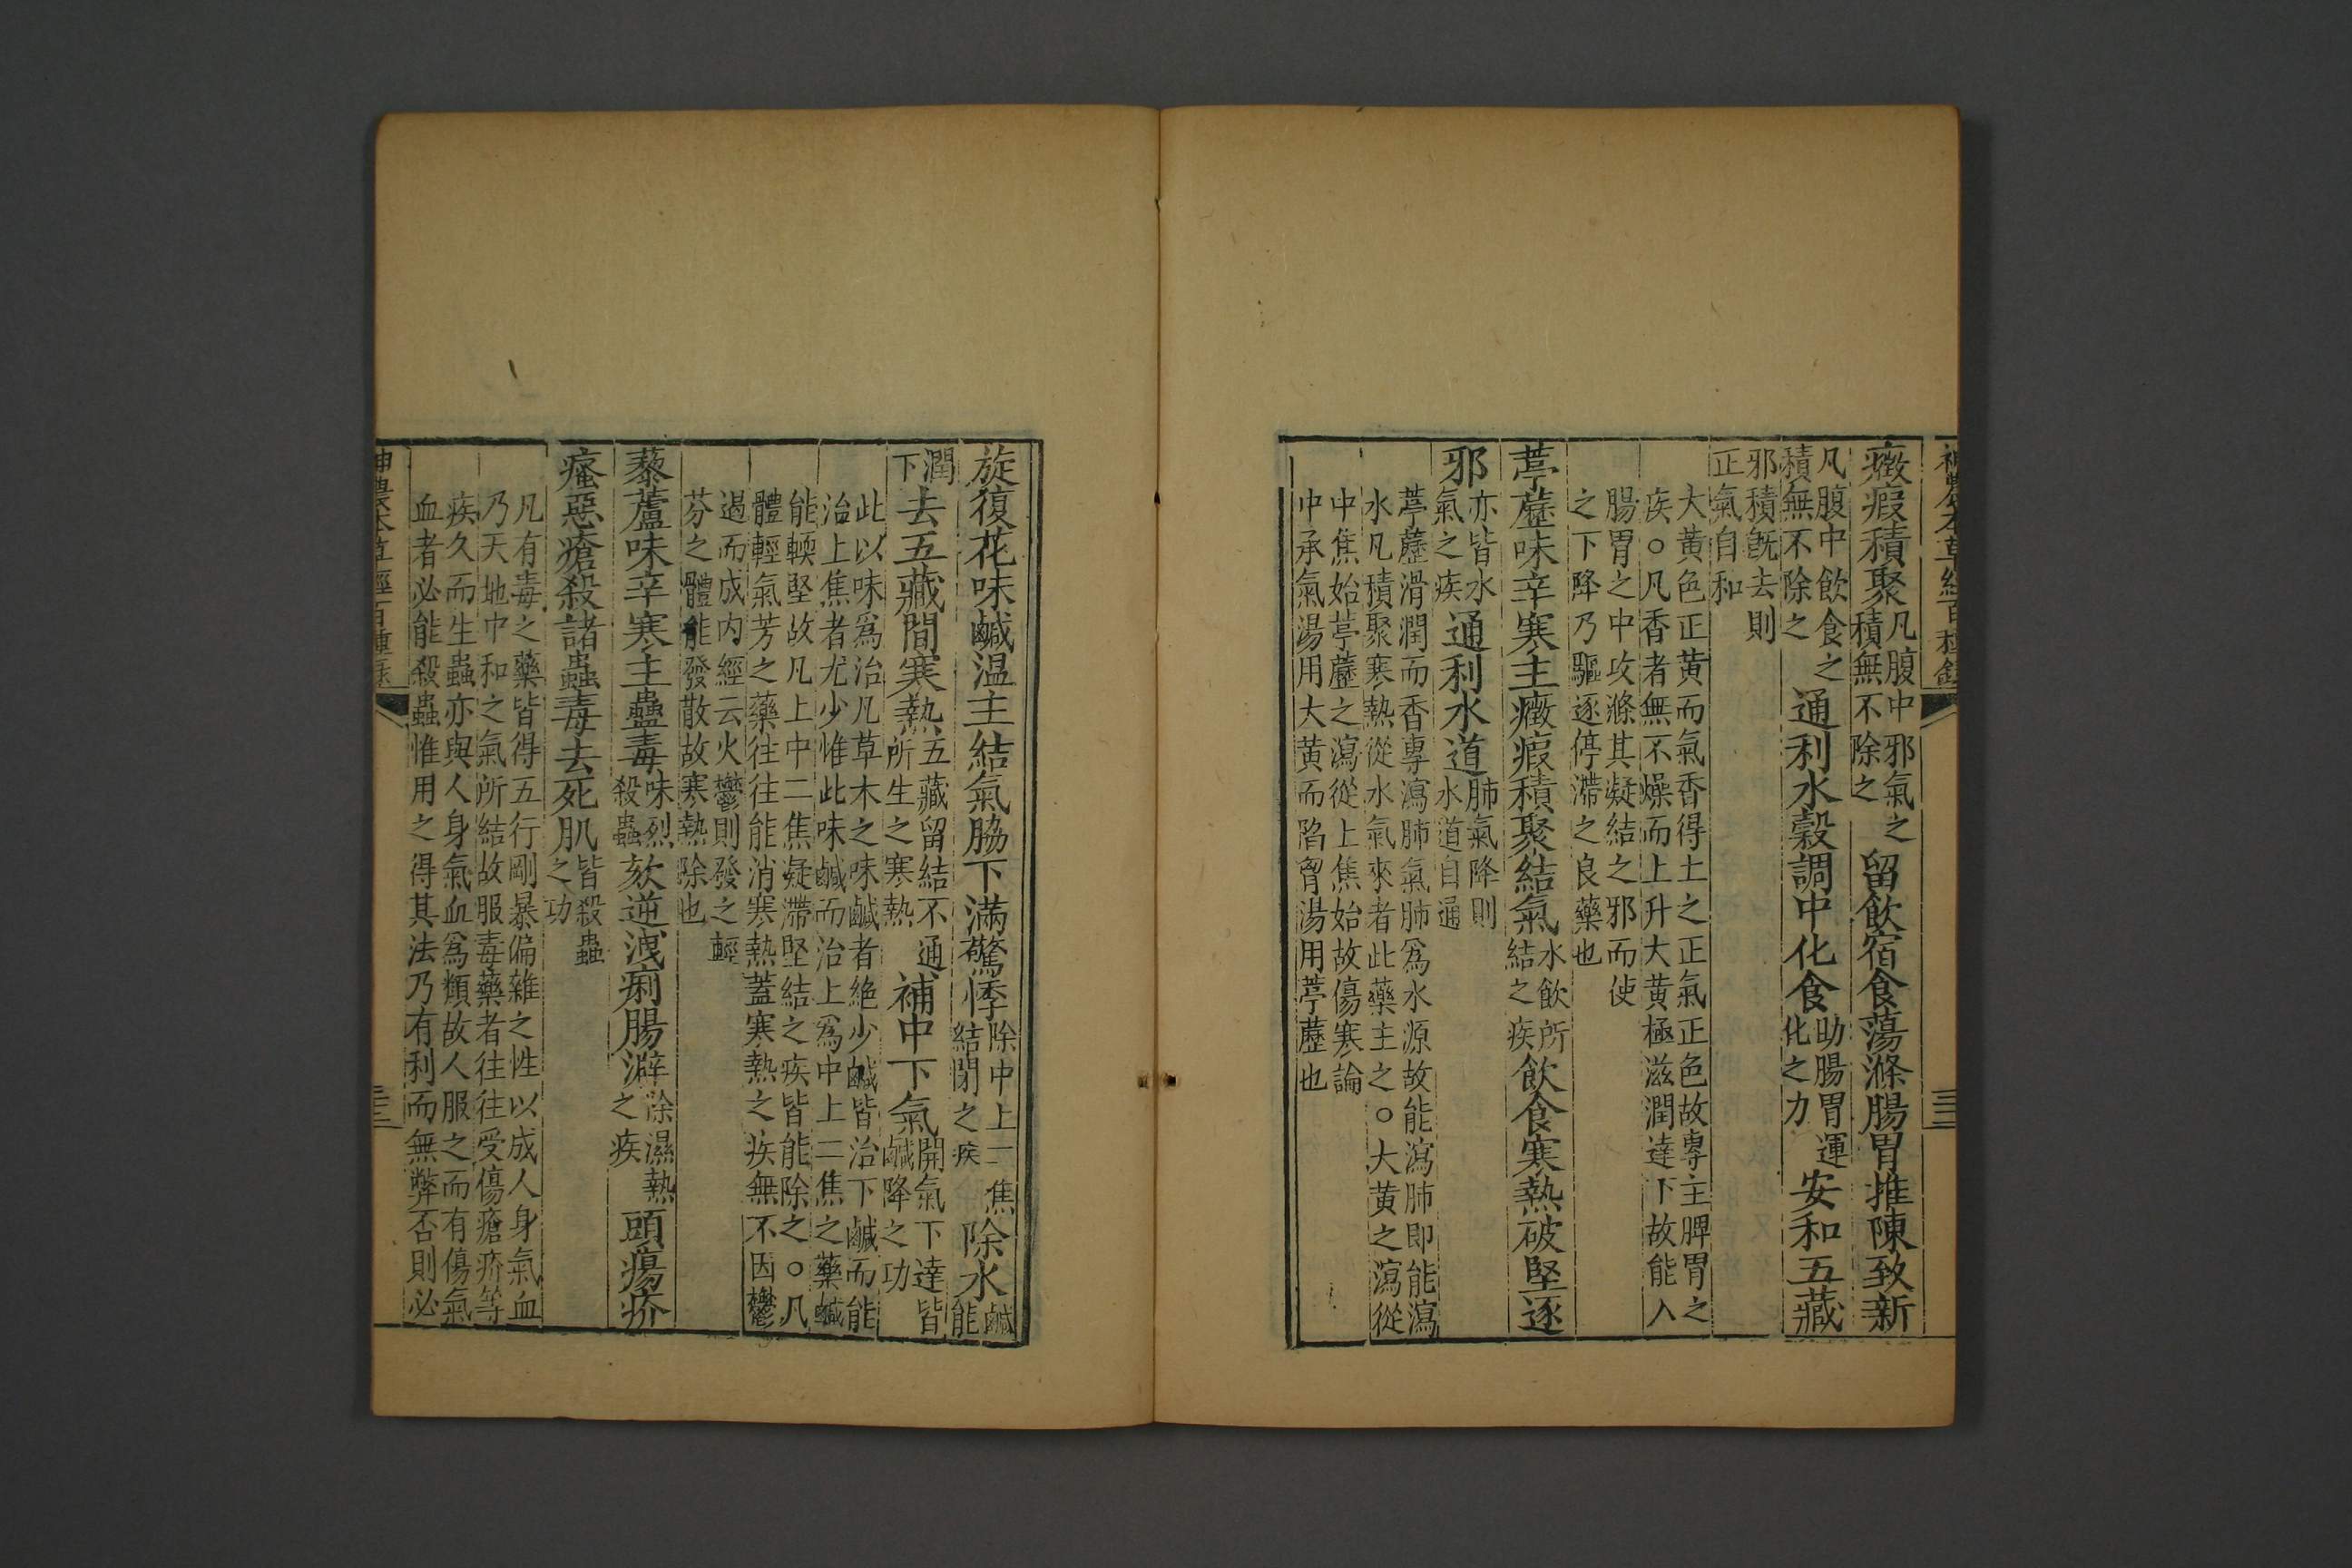 神農本草經百種錄
三三
癥瘕積聚凡腹中邪氣之積無不除之留飲宿食蕩滌腸胃推陳致新
凡腹中飲食之積無不除之通利水穀調中化食助腸胃運化之力安和五藏
邪積旣去則正氣自和
大黃色正黃而氣香得土之正氣正色故專主脾胃之
疾○凡香者無不燥而上升大黃極滋潤達下故能入
腸胃之中攻滌其凝結之邪而使
之下降乃驅逐停滯之良藥也
葶藶味辛寒主癥瘕積聚結氣水飲所結之疾飲食寒熱破堅逐
邪亦皆水氣之疾通利水道肺氣降則水道自通
葶藶滑潤而香專瀉肺氣肺爲水源故能瀉肺即能瀉
水凡積聚寒熱從水氣來者此藥主之○大黃之瀉從
中焦始葶藶之瀉從上焦始故傷寒論
中承氣湯用大黃而陷胷湯用葶藶也
旋復花味鹹温主結氣脇下滿驚悸除中上二焦結閉之疾除水鹹能
潤下去五藏間寒熱五藏留結不通所生之寒熱補中下氣開氣下達皆鹹降之功
此以味爲治凡草木之味鹹者絶少鹹皆治下鹹而能
治上焦者尤少惟此味鹹而治上爲中上二焦之藥鹹
能輭堅故凡上中二焦凝滯堅結之疾皆能除之○凡
體輕氣芳之藥往往能消寒熱蓋寒熱之疾無不因鬱
遏而成内經云火鬱則發之輕
芬之體能發散故寒熱除也
藜蘆味辛寒主蠱毒味烈殺蟲欬逆洩痢腸澼除濕熱之疾頭瘍疥
瘙惡瘡殺諸蟲毒去死肌皆殺蟲之功
凡有毒之藥皆得五行剛暴偏雜之性以成人身氣血
乃天地中和之氣所結故服毒藥者往往受傷瘡疥等
疾久而生蟲亦與人身氣血爲類故人服之而有傷氣
血者必能殺蟲惟用之得其法乃有利而無弊否則必
神農本草經百種錄
三三